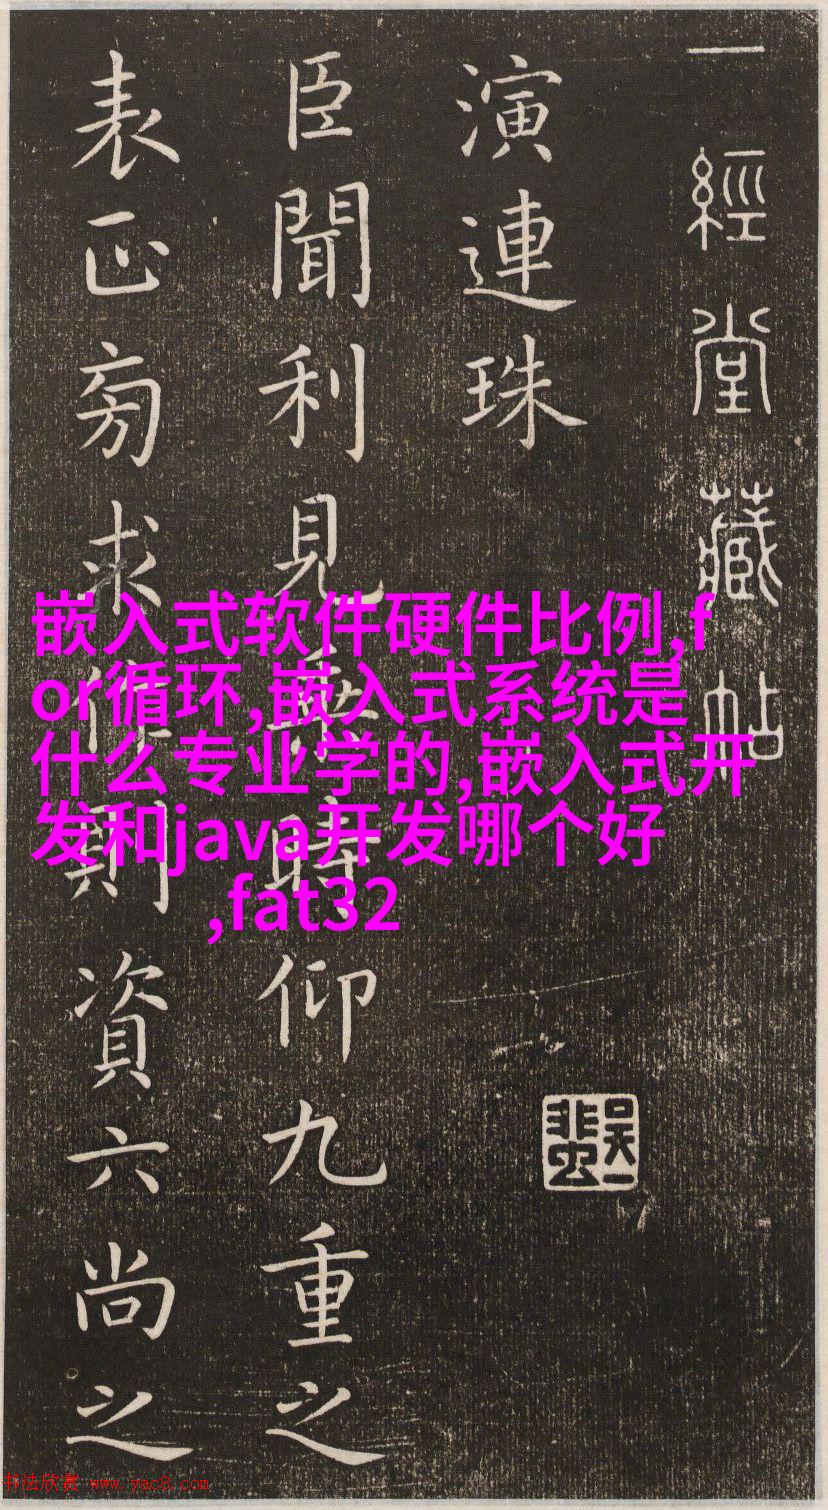 一經堂藏帖
演連珠
臣聞利見乘時仰九重之
表正旁求作則資六尚之
吳一蜚
嵌入式软件硬件比例,f
or循环,嵌入式系统是
什么专业学的,嵌入式开
发和java开发哪个好
,fat32
书法欣赏 www.yac8.com